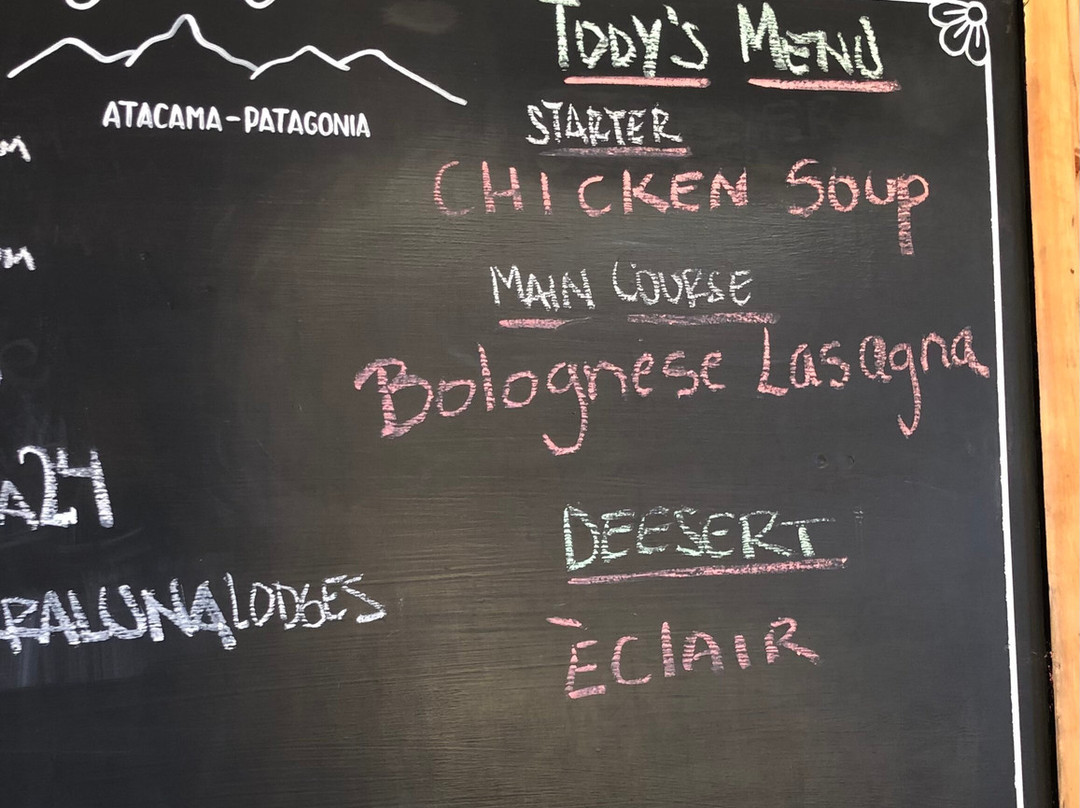 ATACAMA-PATAGONIA
A24
RALUNA LODGES
TODY'S MENU
STARTER
CHICKEN Soup
MAIN COURSE
Bolognese Lasagna
DEESERT
ÈClAIR